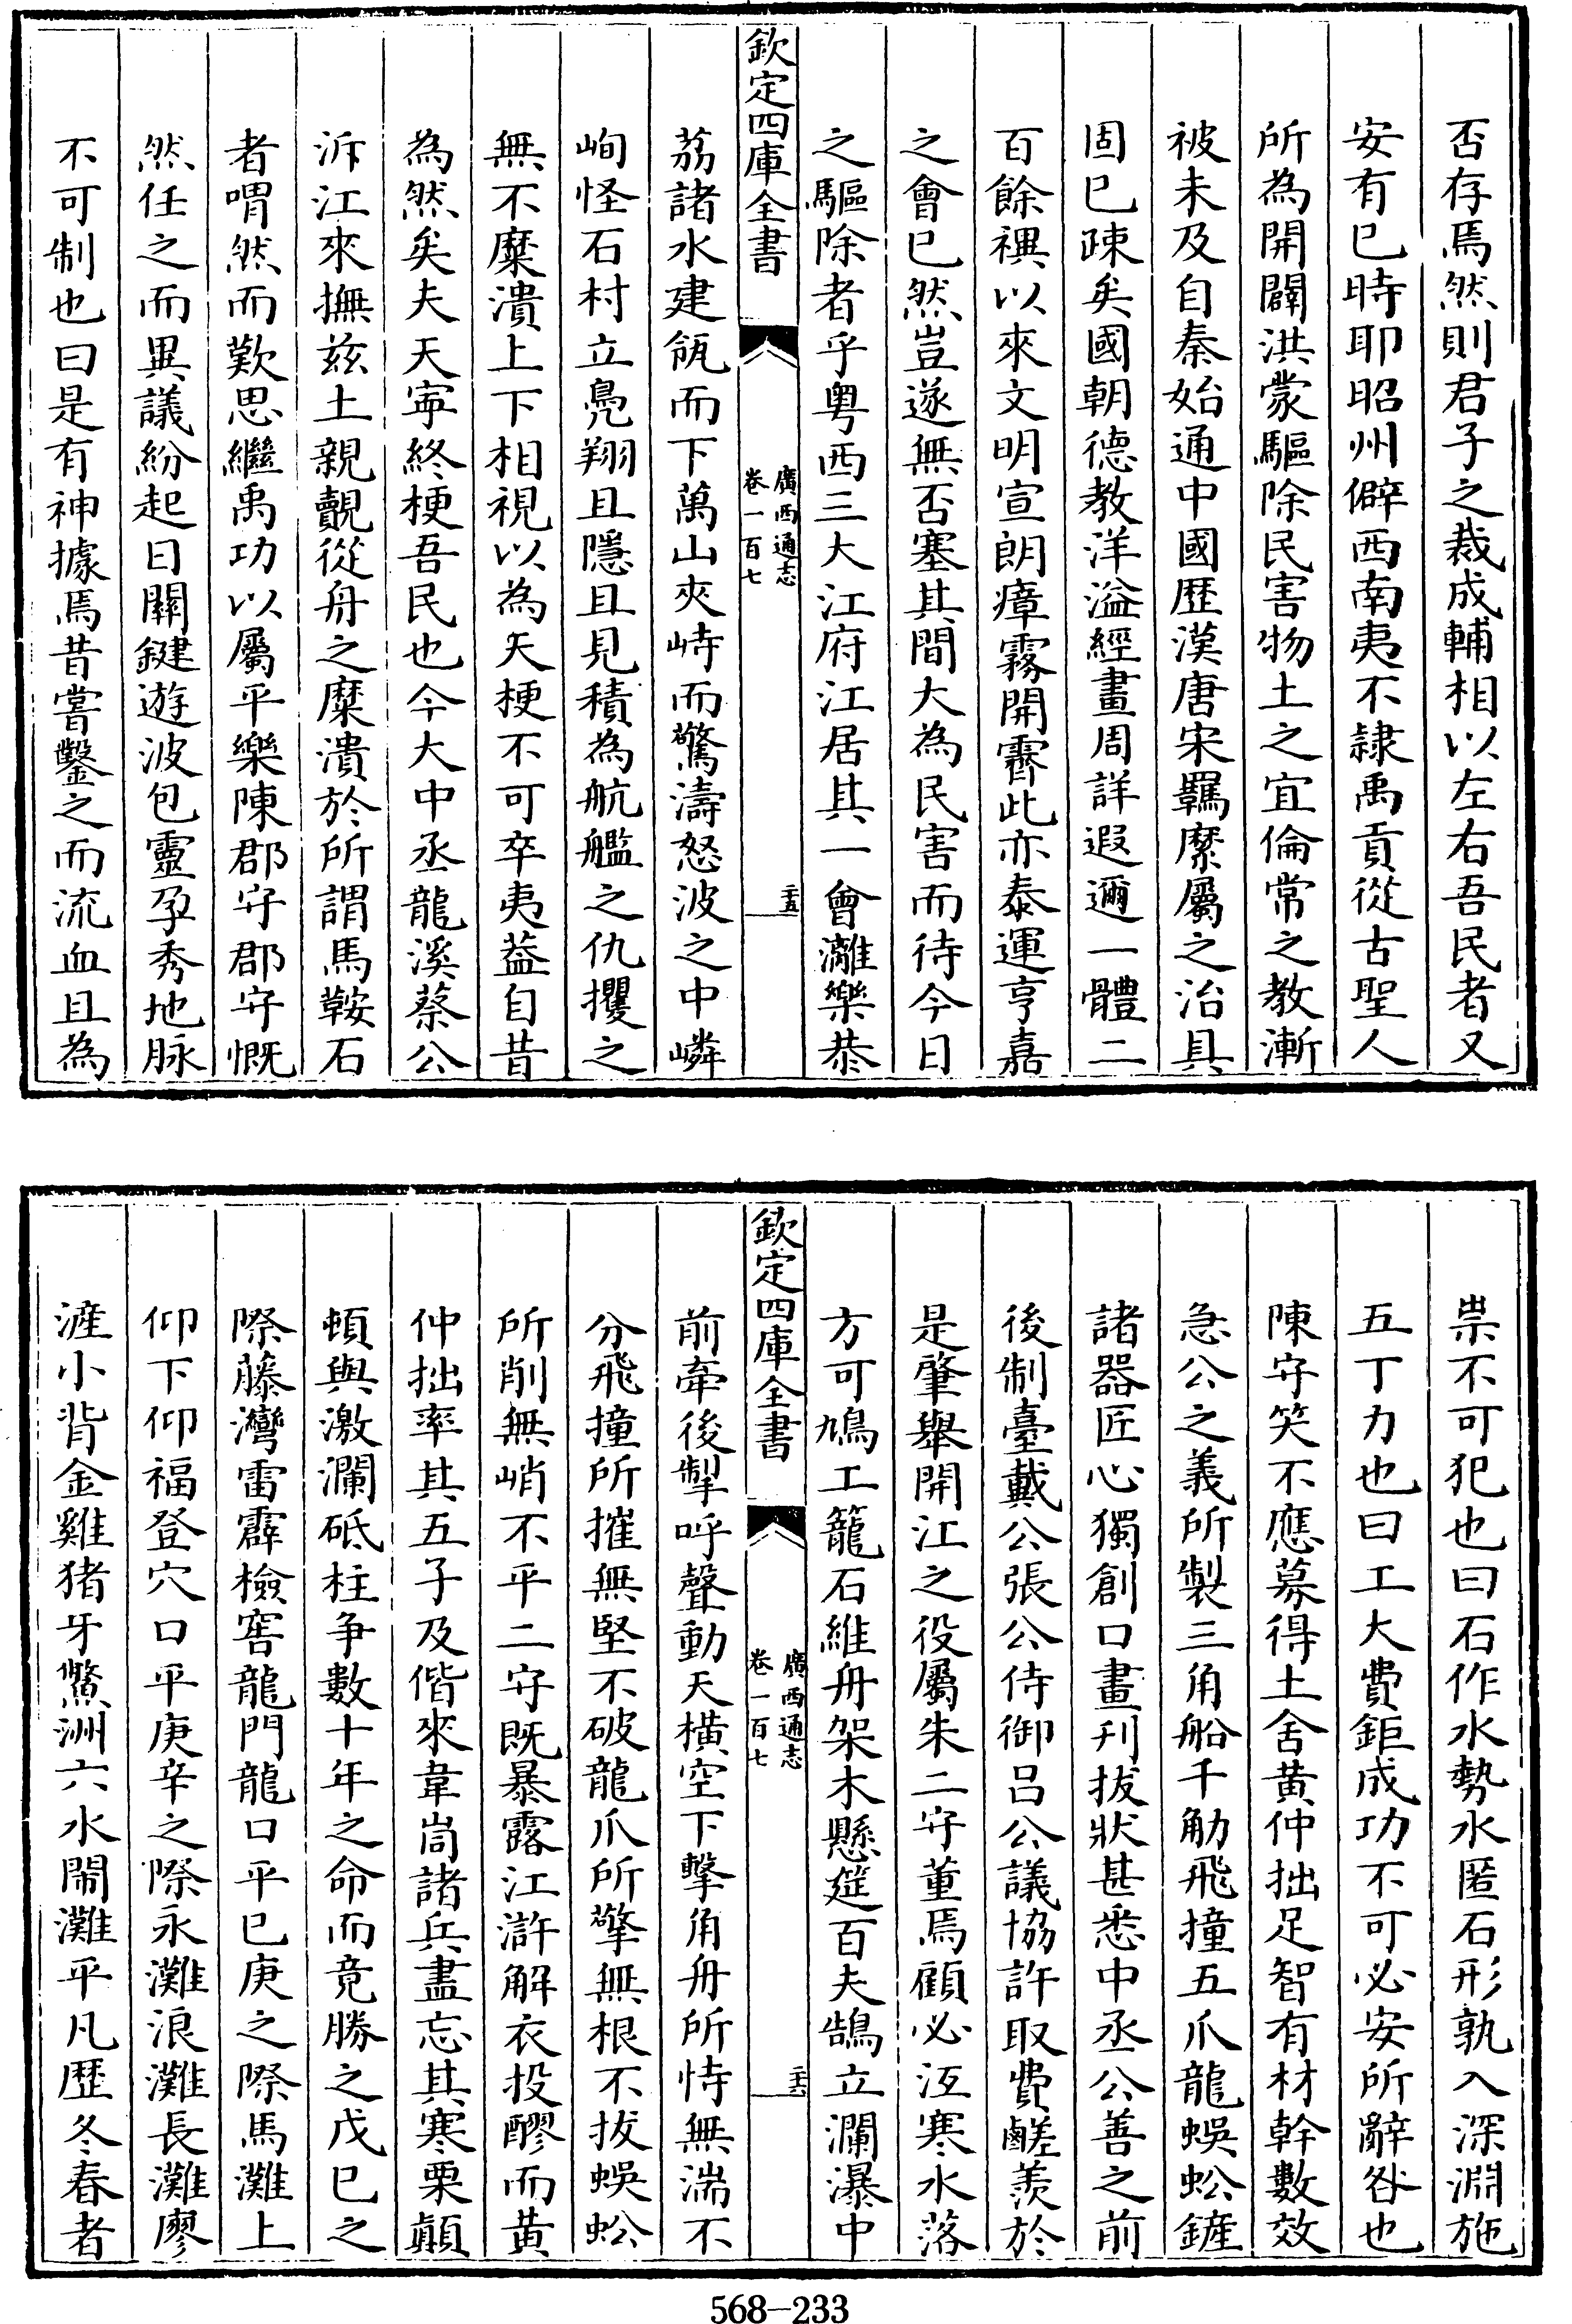 否存焉然則君子之裁成輔相以左右吾民者又
安有已時耶昭州僻西南夷不隷禹貢從古聖人
所為開闢洪蒙驅除民害物土之宜倫常之教漸
被未及自秦始通中國歴漢唐宋羈縻屬之治具
固已疎矣國朝德教洋溢經畫周詳遐邇一體二
百餘禩以來文明宣朗瘴霧開霽此亦泰運亨嘉
之會已然豈遂無否塞其間大為民害而待今日
之驅除者乎粤西三大江府江居其一會灕樂恭
欽定四庫全書
廣西通志
卷一百七
二十五
荔諸水建瓴而下萬山夾峙而驚濤怒波之中嶙
峋怪石村立鳧翔且隱且見積為航艦之仇攖之
無不糜潰上下相視以為天梗不可卒夷葢自昔
為然矣夫天寜終梗吾民也今大中丞龍溪蔡公
泝江來撫兹土親覿從舟之糜潰於所謂馬鞍石
者喟然而歎思繼禹功以屬平樂陳郡守郡守慨
然任之而異議紛起曰關鍵遊波包靈孕秀地脉
不可制也曰是有神據焉昔嘗鑿之而流血且為
祟不可犯也曰石作水勢水匿石形孰入深淵施
五丁力也曰工大費鉅成功不可必安所辭咎也
陳守笑不應募得土舍黄仲拙足智有材幹數效
急公之義所製三角船千觔飛撞五爪龍蜈蚣鏟
諸器匠心獨創口畫刋拔狀甚悉中丞公善之前
後制臺戴公張公侍御吕公議協許取費鹺羨於
是肇舉開江之役屬朱二守董焉顧必沍寒水落
方可鳩工籠石維舟架木懸筵百夫鵠立瀾瀑中
欽定四庫全書
廣西通志
卷一百七
二十六
前牽後掣呼聲動天橫空下擊角舟所恃無湍不
分飛撞所摧無堅不破龍爪所擎無根不拔蜈蚣
所削無峭不平二守既暴露江滸解衣投醪而黄
仲拙率其五子及偕來韋峝諸兵盡忘其寒栗顛
頓與激瀾砥柱争數十年之命而竟勝之戊己之
際藤灣雷霹檢窖龍門龍口平己庚之際馬灘上
仰下仰福登穴口平庚辛之際永灘浪灘長灘廖
漄小背金雞猪牙鱉洲六水閙灘平凡歴冬春者
568-233